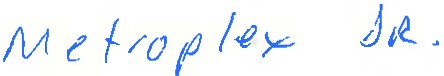 Metroplex DR.